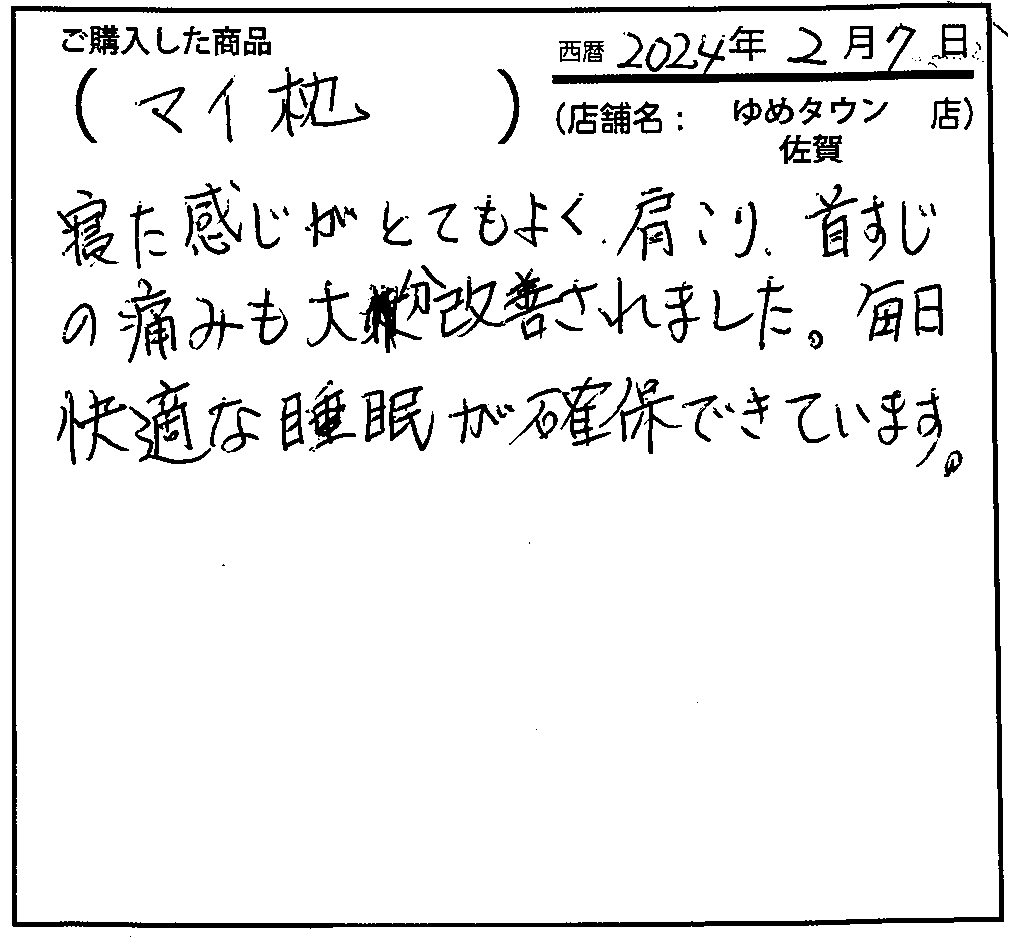 ご購入した商品
(マイ枕)
西暦 2024年 2月7日
(店舗名: ゆめタウン佐賀 店)
寝た感じがとてもよく、肩こり、首すじ
の痛みも大分改善されました。毎日
快適な睡眠が確保できています。